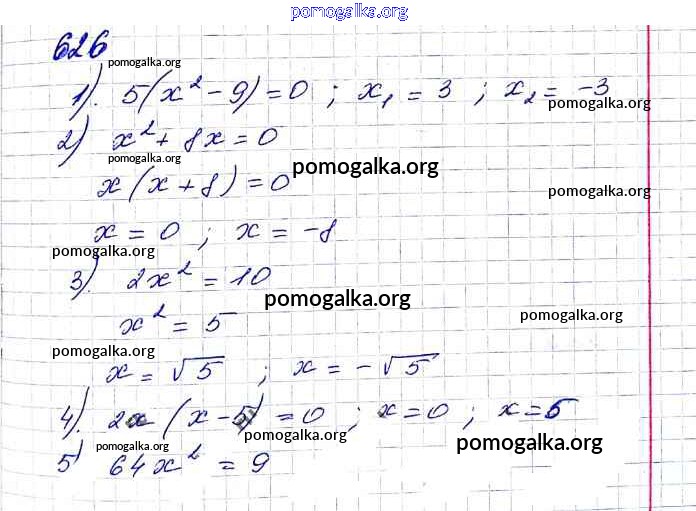 pomogalka.org
626
pomogalka.org
1). 5(x² - 9) = 0 ; x₁ = 3 ; x₂ = -3
pomogalka.org
2) x² + 8x = 0
pomogalka.org
pomogalka.org
x (x + 8) = 0
pomogalka.org
x = 0 ; x = -8
pomogalka.org
3). 2x² = 10
pomogalka.org
x² = 5
pomogalka.org
pomogalka.org
x = √5 ; x = -√5
4). 2x (x - 5) = 0 ; x = 0 ; x = 5
pomogalka.org
pomogalka.org
pomogalka.org
5) 64x² = 9